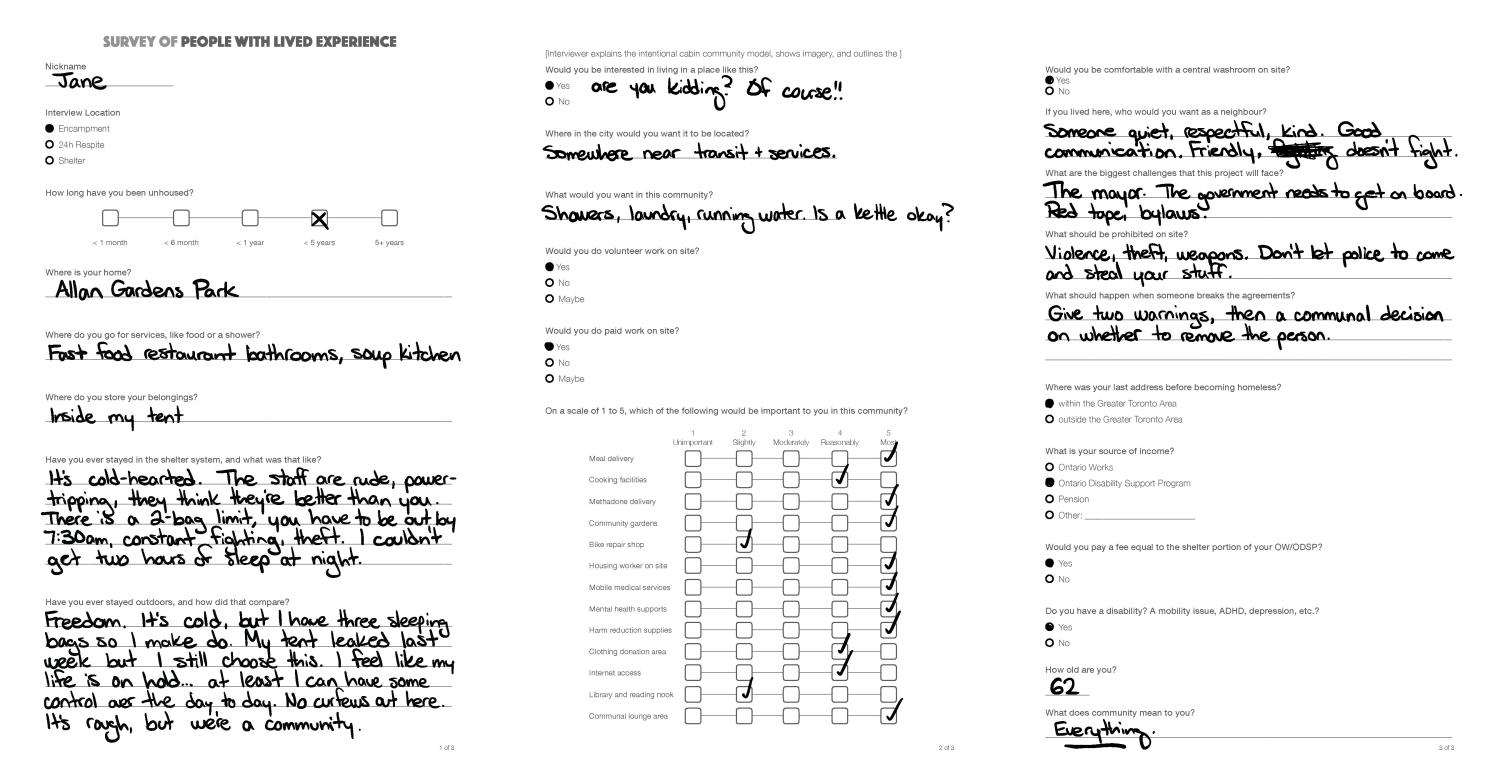 SURVEY OF PEOPLE WITH LIVED EXPERIENCE
Nickname
Jane
Interview Location
Encampment
24h Respite
Shelter
How long have you been unhoused?
< 1 month < 6 month < 1 year < 5 years 5+ years
Where is your home?
Allan Gardens Park
Where do you go for services, like food or a shower?
Fast food restaurant bathrooms, soup kitchen
Where do you store your belongings?
Inside my tent
Have you ever stayed in the shelter system, and what was that like?
It's cold-hearted. The staff are rude, power-
tripping, they think they're better than you.
There is a 2-bag limit, you have to be out by
7:30am, constant fighting, theft. I couldn't
get two hours of sleep at night.
Have you ever stayed outdoors, and how did that compare?
Freedom. It's cold, but I have three sleeping
bags so I make do. My tent leaked last
week but I still choose this. I feel like my
life is on hold... at least I can have some
control over the day to day. No curfews out here.
It's rough, but we're a community.
1 of 3
[Interviewer explains the intentional cabin community model, shows imagery, and outlines the ]
Would you be interested in living in a place like this?
Yes are you kidding? Of course!!
No
Where in the city would you want it to be located?
Somewhere near transit + services.
What would you want in this community?
Showers, laundry, running water. Is a kettle okay?
Would you do volunteer work on site?
Yes
No
Maybe
Would you do paid work on site?
Yes
No
Maybe
On a scale of 1 to 5, which of the following would be important to you in this community?
1 2 3 4 5
Unimportant Slightly Moderately Reasonably Most
Meal delivery
Cooking facilities
Methadone delivery
Community gardens
Bike repair shop
Housing worker on site
Mobile medical services
Mental health supports
Harm reduction supplies
Clothing donation area
Internet access
Library and reading nook
Communal lounge area
2 of 3
Would you be comfortable with a central washroom on site?
Yes
No
If you lived here, who would you want as a neighbour?
Someone quiet, respectful, kind. Good
communication. Friendly, doesn't fight.
What are the biggest challenges that this project will face?
The mayor. The government needs to get on board.
Red tape, bylaws.
What should be prohibited on site?
Violence, theft, weapons. Don't let police to come
and steal your stuff.
What should happen when someone breaks the agreements?
Give two warnings, then a communal decision
on whether to remove the person.
Where was your last address before becoming homeless?
within the Greater Toronto Area
outside the Greater Toronto Area
What is your source of income?
Ontario Works
Ontario Disability Support Program
Pension
Other:
Would you pay a fee equal to the shelter portion of your OW/ODSP?
Yes
No
Do you have a disability? A mobility issue, ADHD, depression, etc.?
Yes
No
How old are you?
62
What does community mean to you?
Everything.
3 of 3